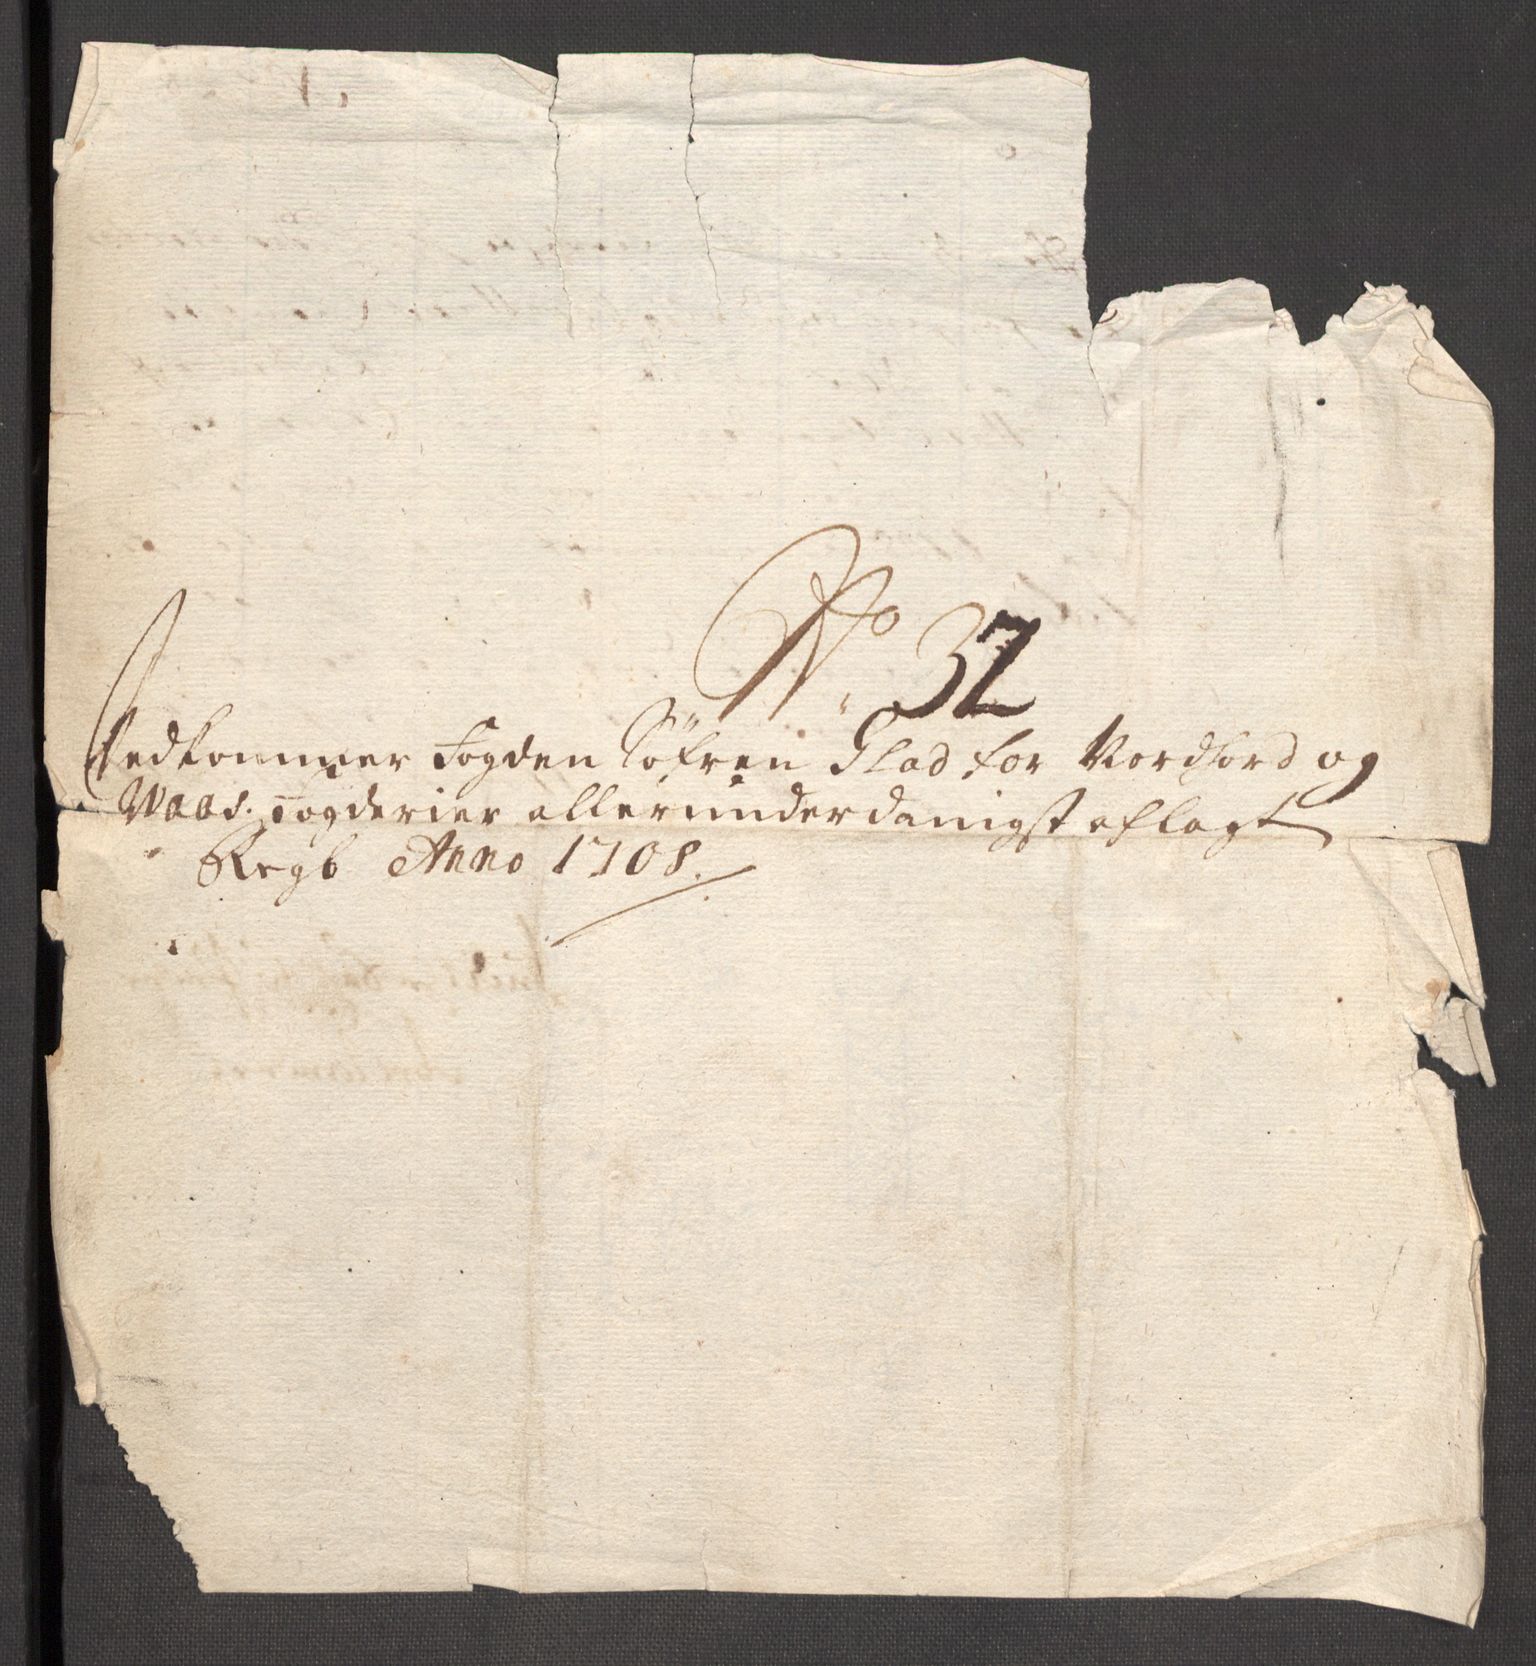 No. 32
Vedkommer Fogden Søfren Glad for Nordfiord og
Waas. Fogderier allerunderdanigst aflagt
Regb Anno 1708.